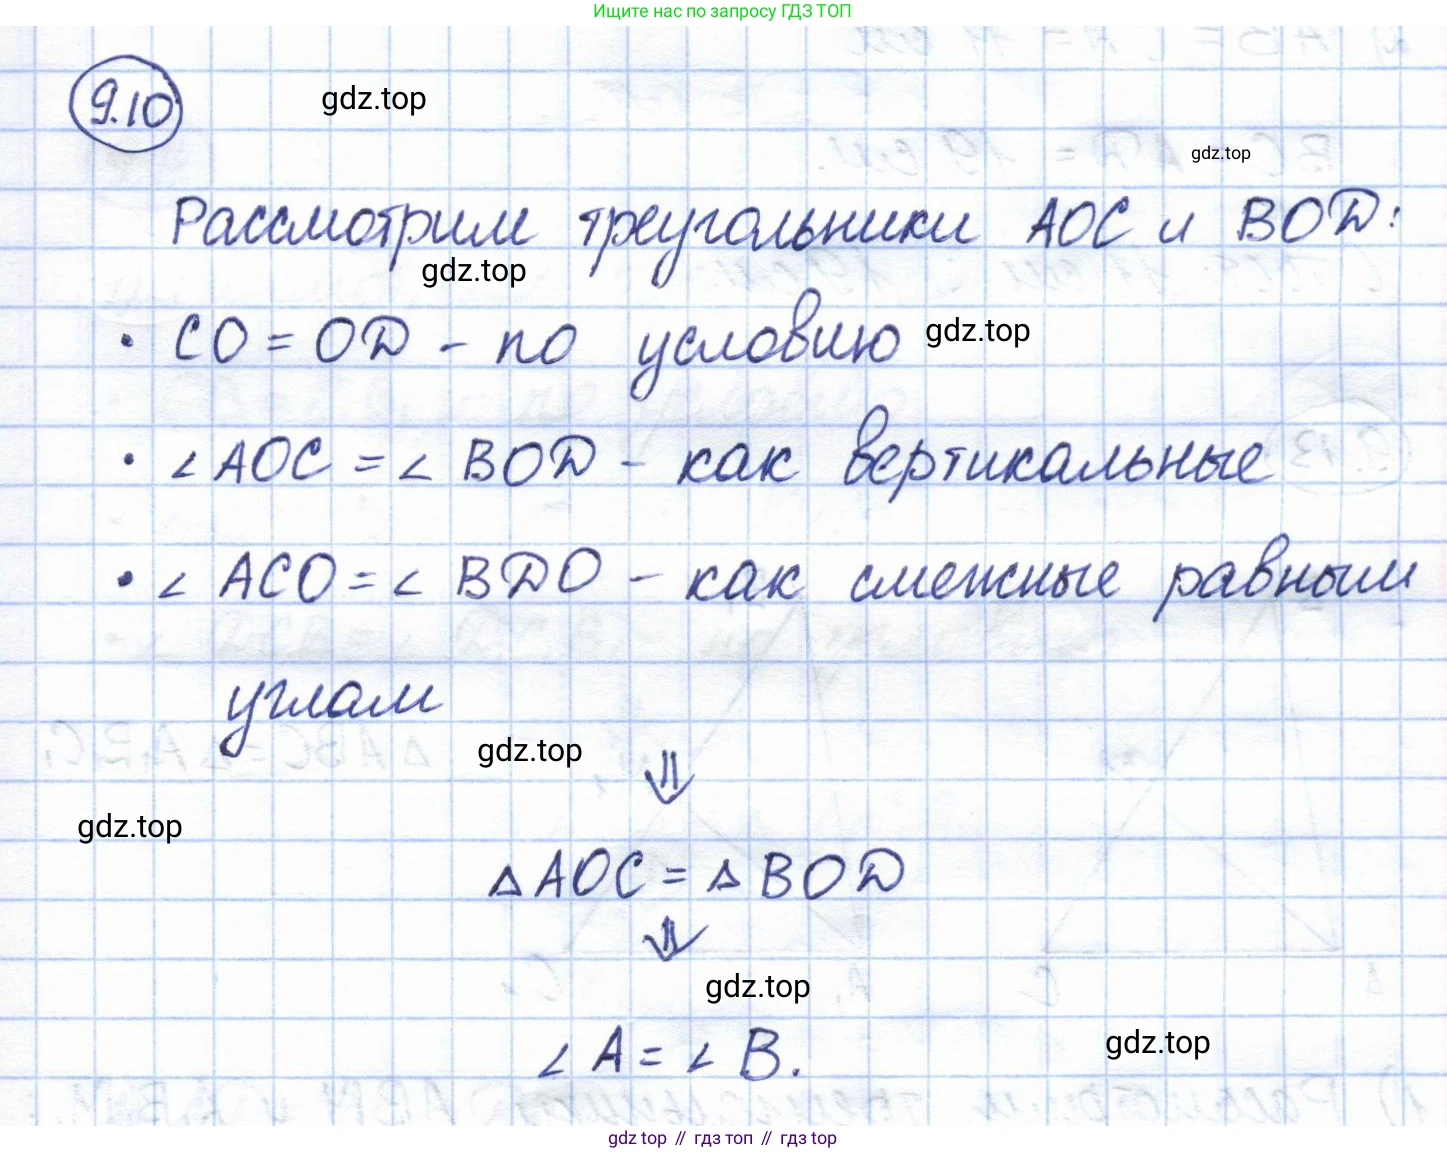 Ищите нас по запросу ГДЗ ТОП
9.10
gdz.top
gdz.top
Рассмотрим треугольники AOC и BOD:
gdz.top
• CO = OD - по условию gdz.top
• ∠ AOC = ∠ BOD - как вертикальные
• ∠ ACO = ∠ BDO - как смежные равным
углам
gdz.top
⇓
gdz.top
△ AOC = △ BOD
⇓
gdz.top
∠ A = ∠ B.
gdz.top
gdz top // гдз топ // гдз top